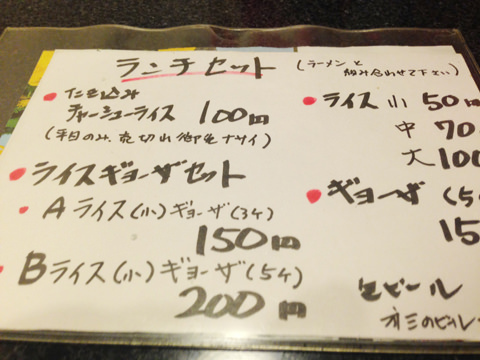 ランチセット
(ラーメンと
組み合わせて下さい)
・たき込み
チャーシューライス 100円
(平日のみ、売切れ御免ナサイ)
・ライスギョーザセット
・Aライス(小)ギョーザ(3ケ)
150円
・Bライス(小)ギョーザ(5ケ)
200円
・ライス 小 50円
中 70
大 100
・ギョーザ (5
15
生ビール
オミのビル